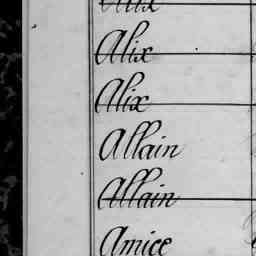 Alix
Alix
Alix
Allain
Allain
Amice